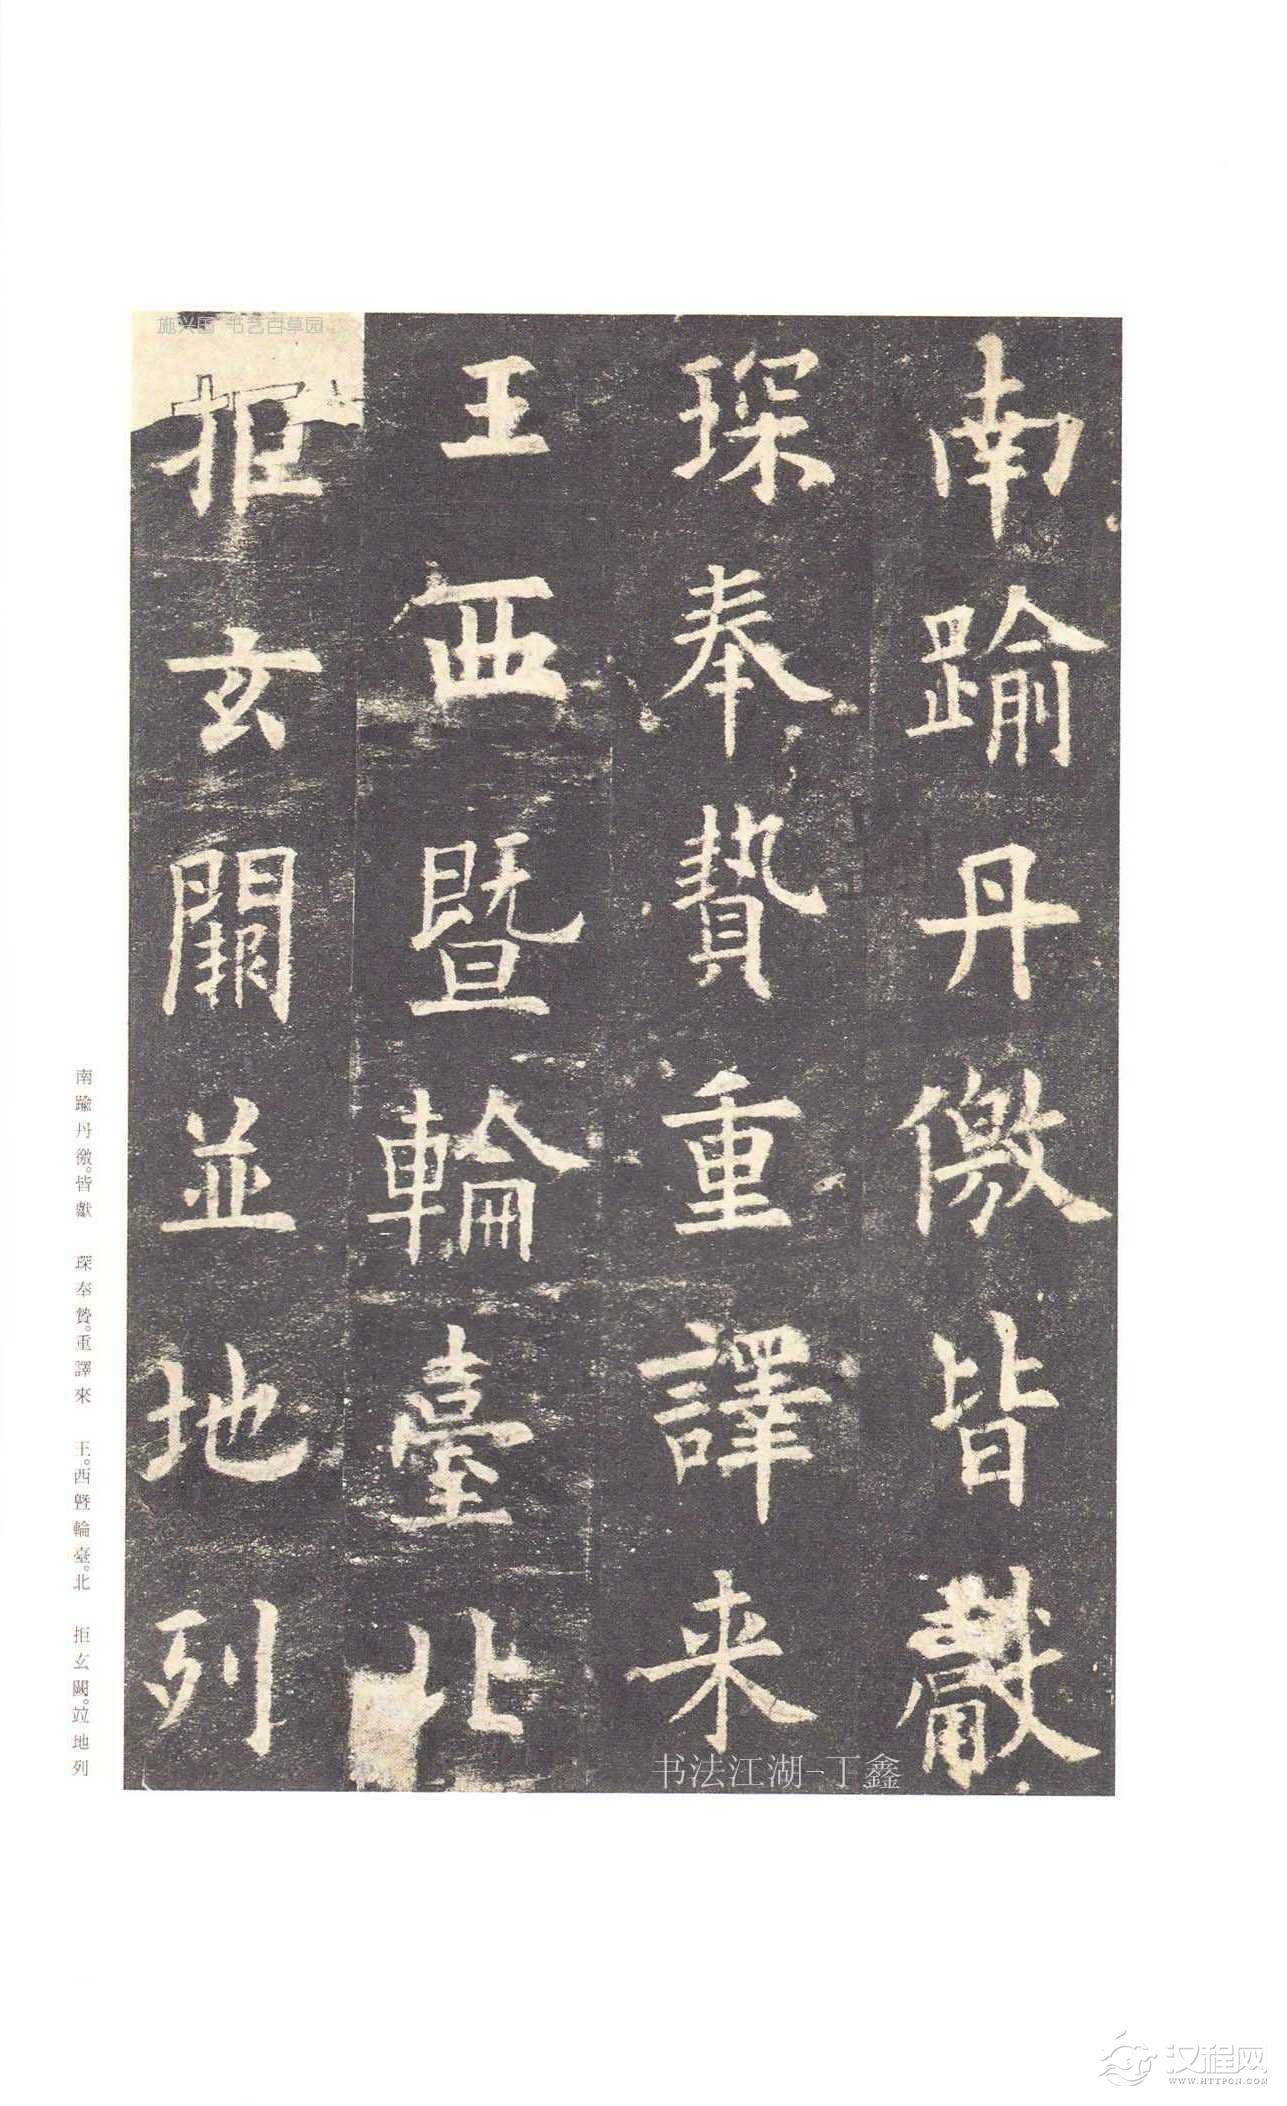 南踰丹儌皆獻
琛奉贄重譯来
王西暨輪臺北
拒玄闕並地列
南踰丹徼。皆獻 琛奉贄。重譯來 王。西曁輪臺。北 拒玄闕。竝地列
施兴国 书艺百草园
书法江湖-丁鑫
汉程网
WWW.HTTPCN.COM